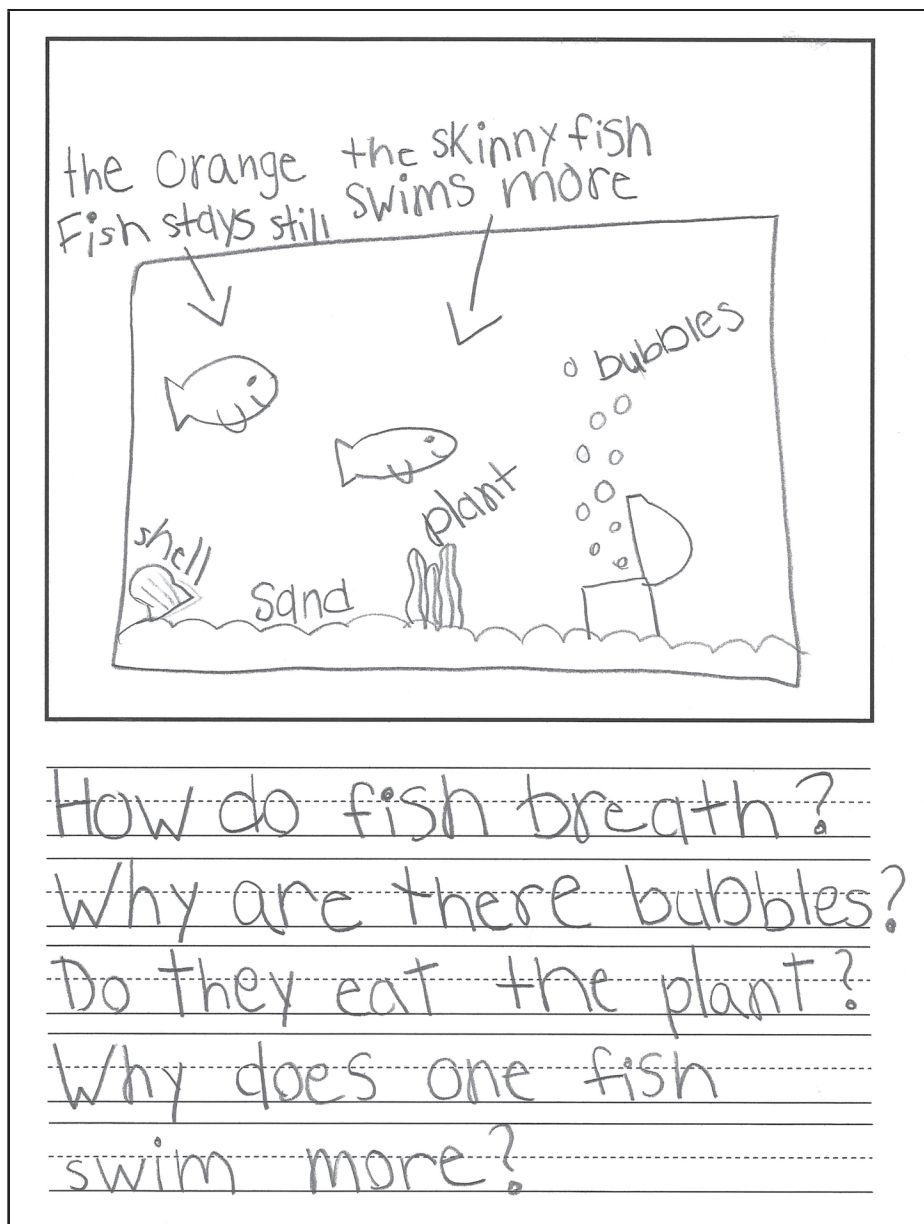 the orange
Fish stays still
the skinny fish
swims more
bubbles
plant
shell
Sand
How do fish breath?
Why are there bubbles?
Do they eat the plant?
Why does one fish
swim more?